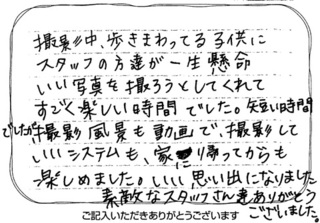 撮影中、歩きまわってる子供に
スタッフの方達が一生懸命
いい写真を撮ろうとしてくれて
すごく楽しい時間でした。短い時間
でしたが撮影風景も動画で、撮影して
いいシステムも、家に帰ってからも
楽しめました。いい思い出になりました
素敵なスタッフさん達ありがとう
ございました。
ご記入いただきありがとうございます